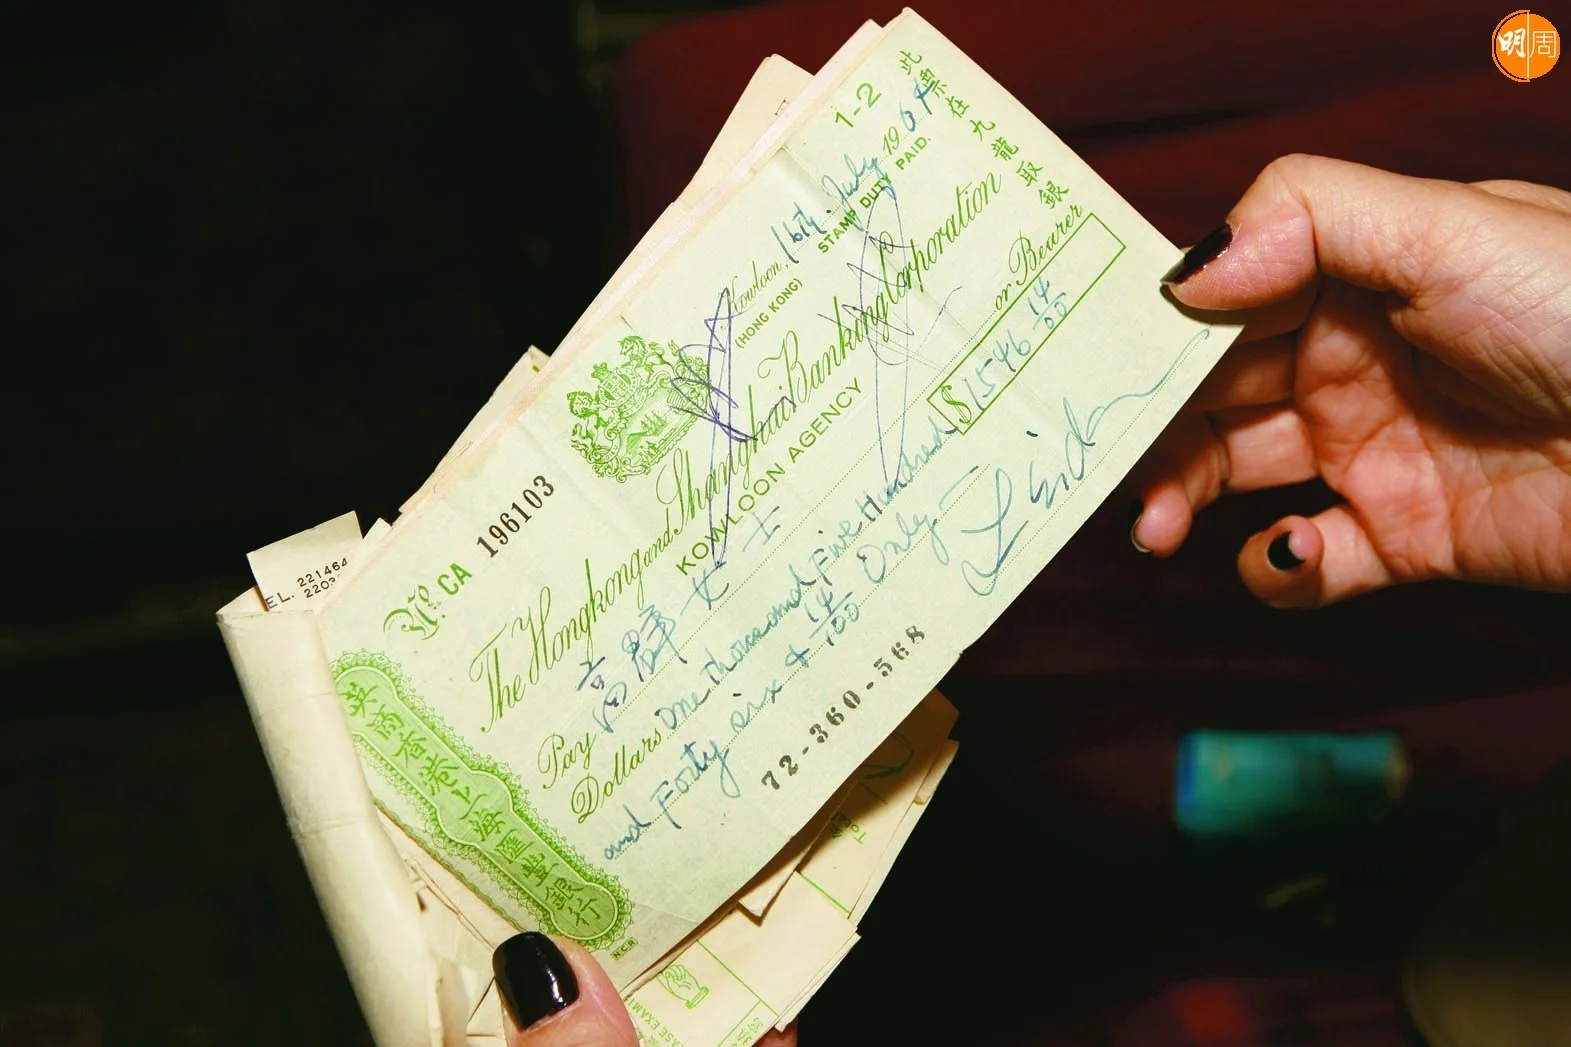 明周
此票在九龍取銀
1-2
Kowloon, 16th July 1964
(HONG KONG)
STAMP DUTY PAID.
No. CA 196103
The Hongkong and Shanghai Banking Corporation
KOWLOON AGENCY
Pay 高群女士 or Bearer
Dollars One thousand Five Hundred
and Forty six & 14/00 Only
$1546 14/00
72-360-568
英商香港上海匯豐銀行
N.C.R
EL. 221464